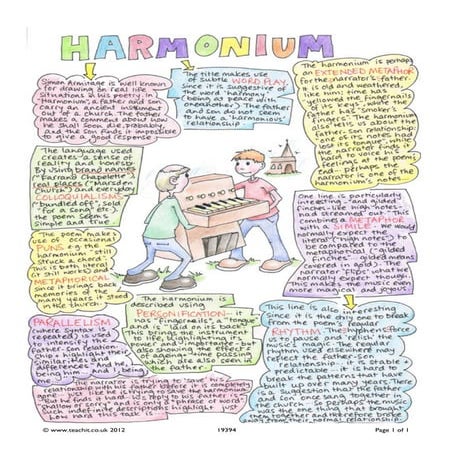 HARMONIUM
Simon Armitage is well known
for drawing on real life
situations in his poetry. In
"Harmonium", a father and son
carry an ancient instrument
out of a church. The father
makes a comment about how
he shall soon die, probably,
and the son finds it impossible
to give a good response.
The title makes use
of subtle WORD PLAY,
since it is suggestive of
the word "harmony"
(being at peace with
one another). The father
and son do not seem
to have a 'harmonious'
relationship.
The harmonium is perhaps
an EXTENDED METAPHOR
for the narrator's father.
It is old and weathered,
like him; time has
yellowed the fingernails
of its keys, while the
father has "smoker's
fingers". The harmonium
also tells us about the
father-son relationship:
one of its notes had
lost its tongue,
narrator finds it
hard to voice his
feelings at the poem's
end - perhaps the
narrator is one of the
harmonium's notes.
The language used
creates a sense of
reality and honesty.
By using brand names
("Farrand Chapelette"),
real places ("Marsden
Church") and everyday
COLLOQUIALISMS
("bundled off", "sold
for a song") the
poem seems
simple and true.
The poem makes
use of occasional
PUNS e.g. the
harmonium
"struck a chord".
This is both literal
(it still works) and
METAPHORICAL
since it brings back
memories of the
many years it stood
in the church.
One line is particularly
interesting - "and gilded
finches - like high notes -
had streamed out." This
combines a METAPHOR
with a SIMILE - we would
normally expect the
literal ("high notes") to
be compared to the
metaphorical ("gilded
finches" - gilded means
covered in gold). The
narrator 'flips' what we
normally expect though.
This makes the music even
more magical and joyous.
The harmonium is
described using
PERSONIFICATION - it
has "fingernails", a "tongue"
and is "laid on its back".
This brings the instrument
to life, highlighting its
power and importance - but
also showing the effects
of ageing - time passing -
which are also seen in
the father.
PARALLELISM
(where syntax is
repeated) is used
to intensify the
father-son relationship
+ highlight their
similarities and
differences: "And he,
being him... and I, being
me..."
This line is also interesting
since it is the only one to break
from the poem's regular
RHYTHM. The hyphens force
us to pause and 'relish' the
music's magic. The regular
rhythm used elsewhere may
reflect the father-son
relationship - it is stable +
predictable - it is hard to
break the patterns that have
built up over many years. There
is a suggestion that the father
and son once sang together in
the church - so perhaps the music
was the one thing that brought
them together and therefore broke
away from their normal relationship.
The narrator is trying to 'save' his
relationship with his father before it is completely
gone - just like he is saving the harmonium.
But he finds it hard - his reply to his father is "too
shallow or sorry", and is only a "phrase or word".
Such indefinite descriptions highlight just
how hard this task is.
© www.teachit.co.uk 2012
19394
Page 1 of 1